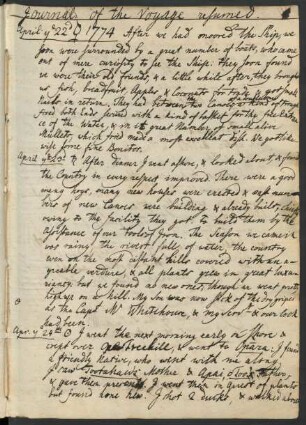 Journal of the Voyage resumed.
April ye 22d 1774 After we had moored the Ship, we
soon were surrounded by a great number of boats, who came
out of mere curiosity to see the Ship: they soon found
we were their old friends, & a little while after, they brought
us fish, breadfruit, Apples & Coconuts for trade & got
Nails in return. They had between two Canoes a kind of
with a kind of basket for the
of the Water, & in it a great Number of small alive
Mullets, which fried made a most excellent dish. We got like
wise some fine Bonetos.
April 23d After dinner I went ashore, & looked about & found
the Country in every respect improved. There were a good
many hogs, many new houses were erected & vast num
bers of new Canoes were building & already built,
owing to the facility they got to build them by the
assistance of our tools of Iron. The Season we came in
was rainy the rivers full of water, the country
even on the most distant hills covered with an a-
greable verdure, & all plants grew in great luxu
riancy, but we found as new ones, though we went pretty
high up on a hill. My Son was now sick of the
as the Capt. Mr Whitehouse, & my
had been.
April ye 24th I went the next morning early on Shore &
crept over One-tree-hill, & went to Oparre. I found
a friendly Native, who went with me along.
I saw Tootahaw's Mother & Father,
& gave them presents. I went then in quest of plants
but found none new. I shot 2 ducks, & walked along